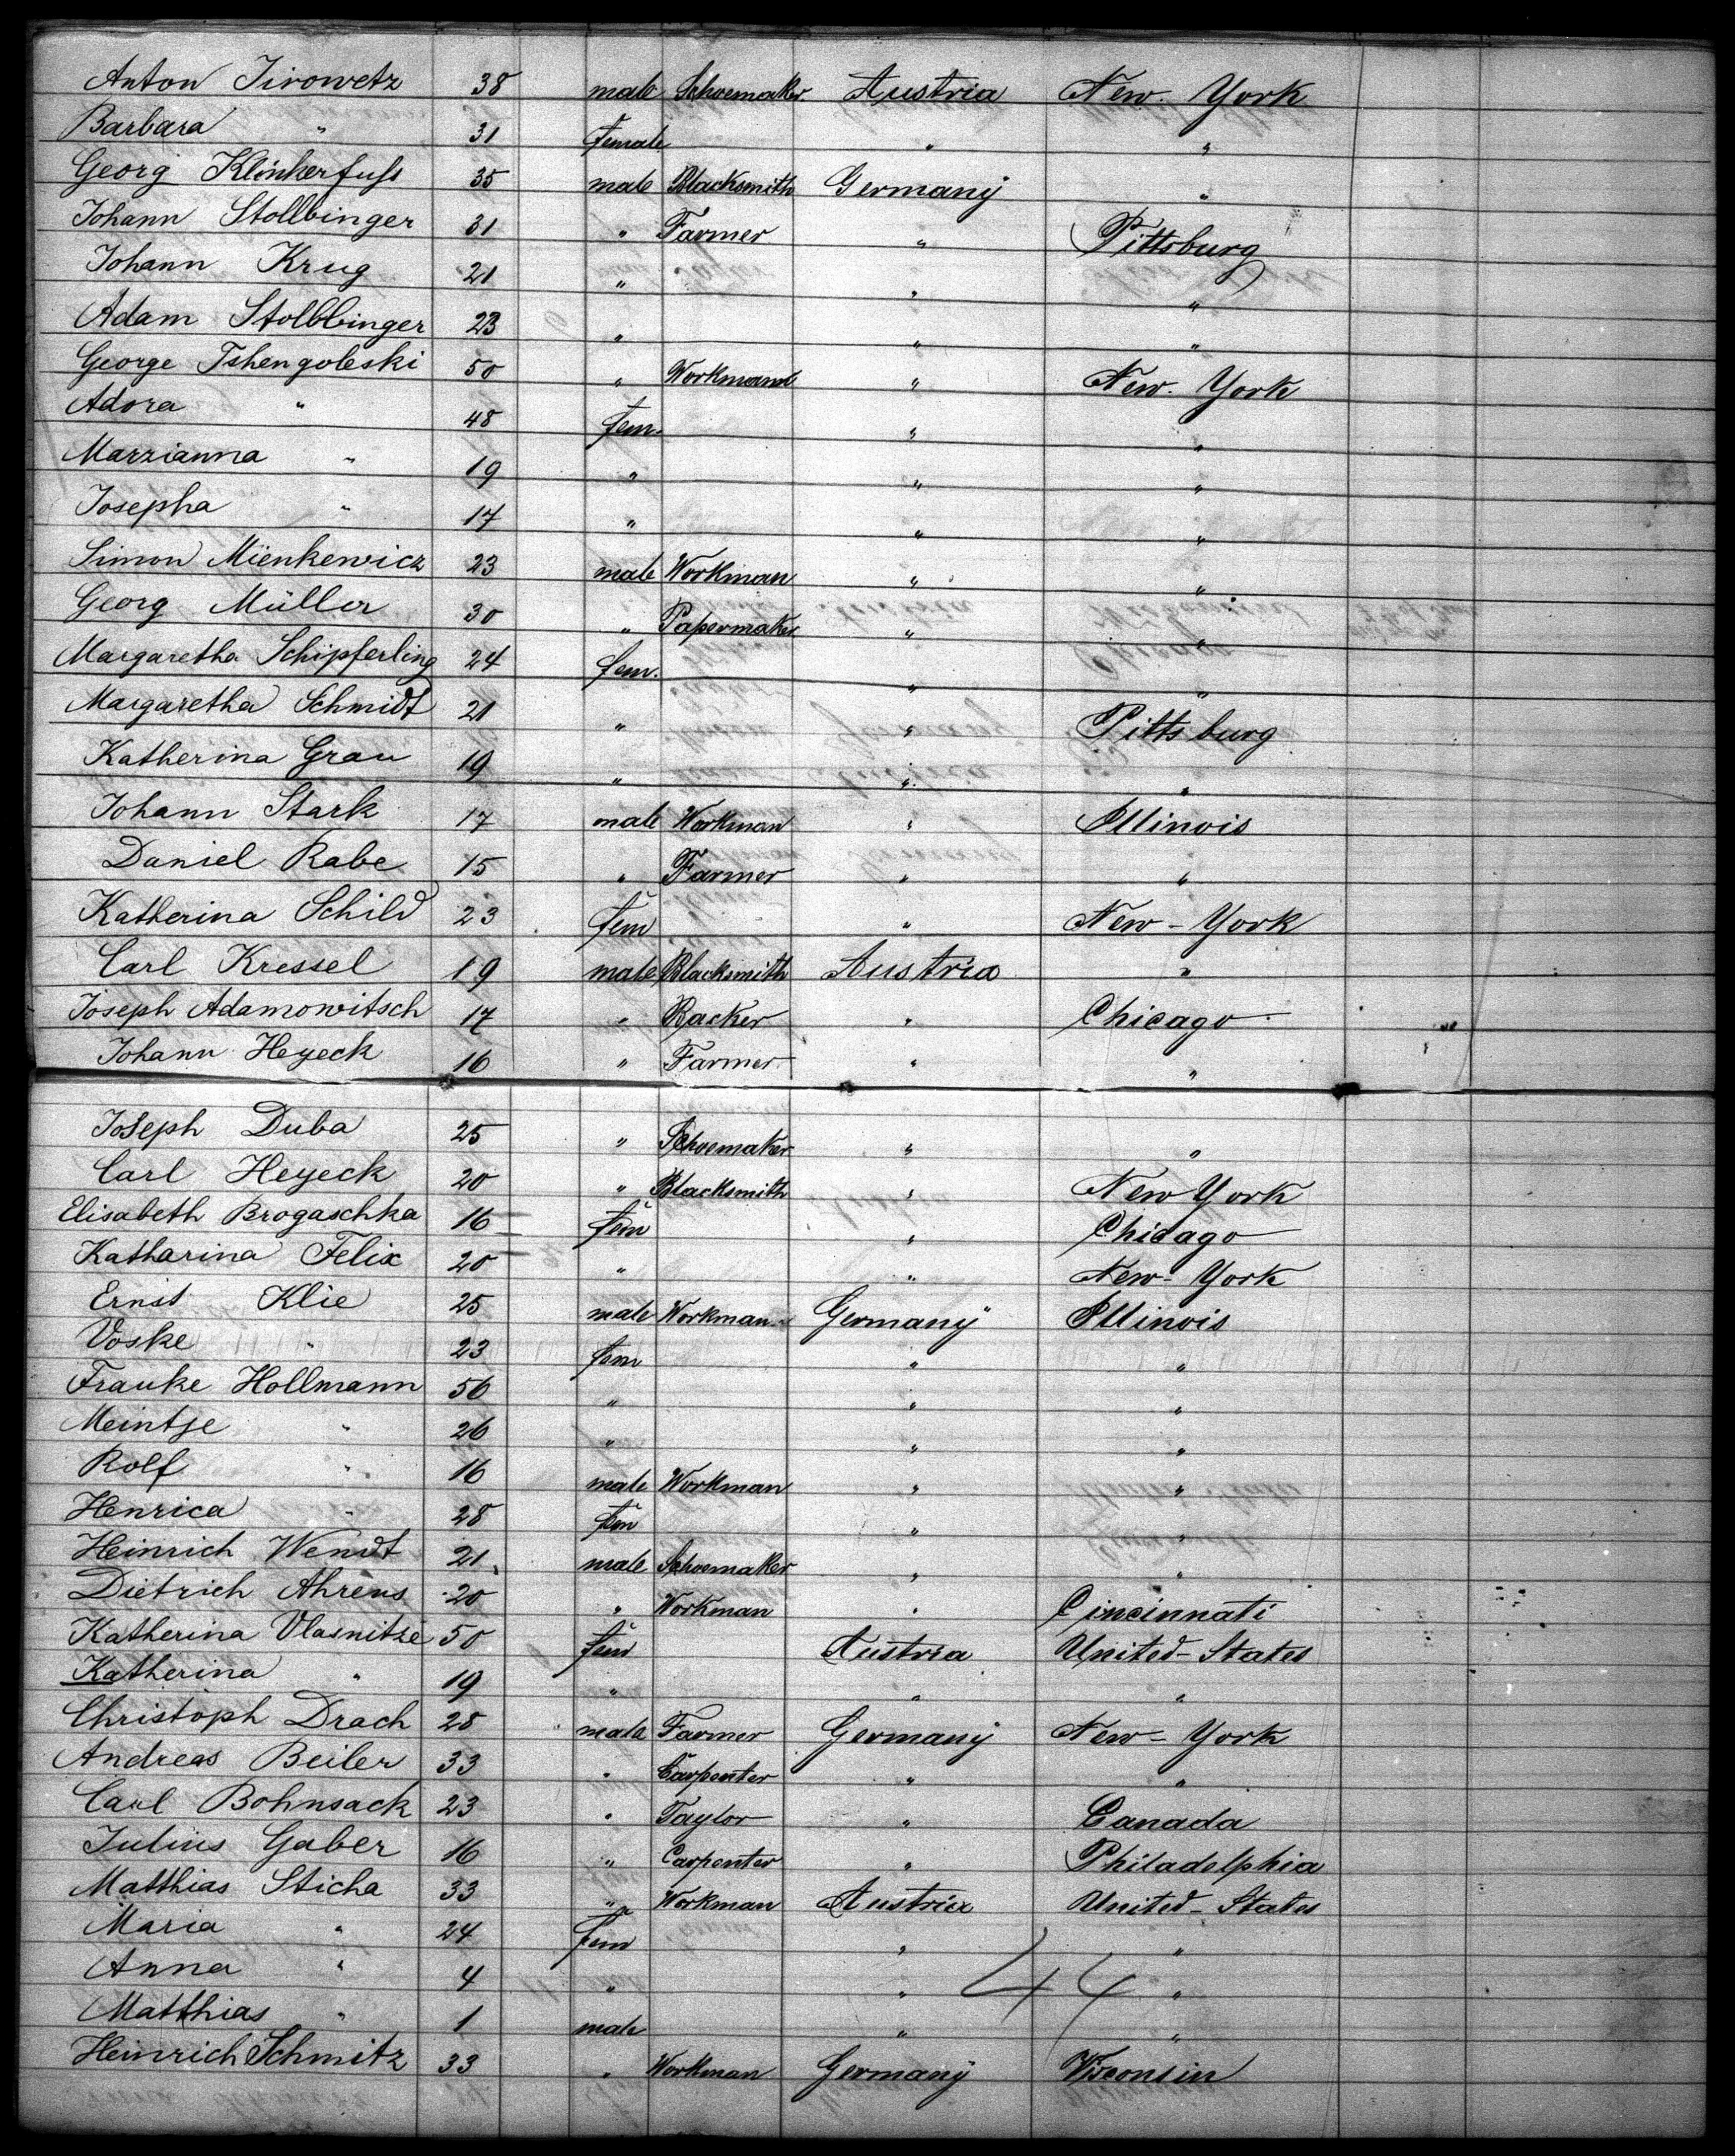 Anton Jirowetz 38 male Schoemaker. Austria New. York
Barbara " 31 Female " "
Georg Klinkerfuss 35 male Blacksmith Germany "
Johann Stollbinger 31 " Farmer " Pittsburg
Johann Krug 21 " " "
Adam Stolbbinger 23 " " "
George Tshengoleski 50 " Workmand " New. York
Adora " 48 fem. " "
Marzianna " 19 " " "
Josepha " 17 " " "
Simon Mienkewicz 23 male Workman " "
Georg Müller 30 " Papermaker " "
Margaretha Schipferling 24 fem. " "
Margaretha Schmidt 21 " " Pittsburg
Katherina Grau 19 " " "
Johann Stark 17 male Workman " Illinois
Daniel Rabe 15 " Farmer " "
Katherina Schild 23 fem " New-York
Carl Kressel 19 male Blacksmith Austria "
Joseph Adamowitsch 17 " Backer " Chicago
Johann Heyeck 16 " Farmer " "
Joseph Duba 25 " Schoemaker " "
Carl Heyeck 20 " Blacksmith " New York
Elisabeth Brogaschka 16 fem " Chicago
Katharina Felix 20 " " New-York
Ernst Klie 25 male Workman Germany Illinois
Voske " 23 fem " "
Frauke Hollmann 56 " " "
Meintje " 26 " " "
Rolf " 16 male Workman " "
Henrica " 28 fem " "
Heinrich Wendt 21 male Schoemaker " "
Dietrich Ahrens 20 " Workman " Cincinnati
Katherina Vlasnitze 50 fem Austria United-States
Katherina " 19 " " "
Christoph Drach 28 male Farmer Germany New-York
Andreas Beiler 33 " Carpenter " "
Carl Bohnsack 23 " Taylor " Canada
Julius Gaber 16 " Carpenter " Philadelphia
Matthias Sticha 33 " Workman Austria United-States
Maria " 24 fem " "
Anna " 4 " " "
44
Matthias " 1 male " "
Heinrich Schmitz 33 " Workman Germany Visconsin